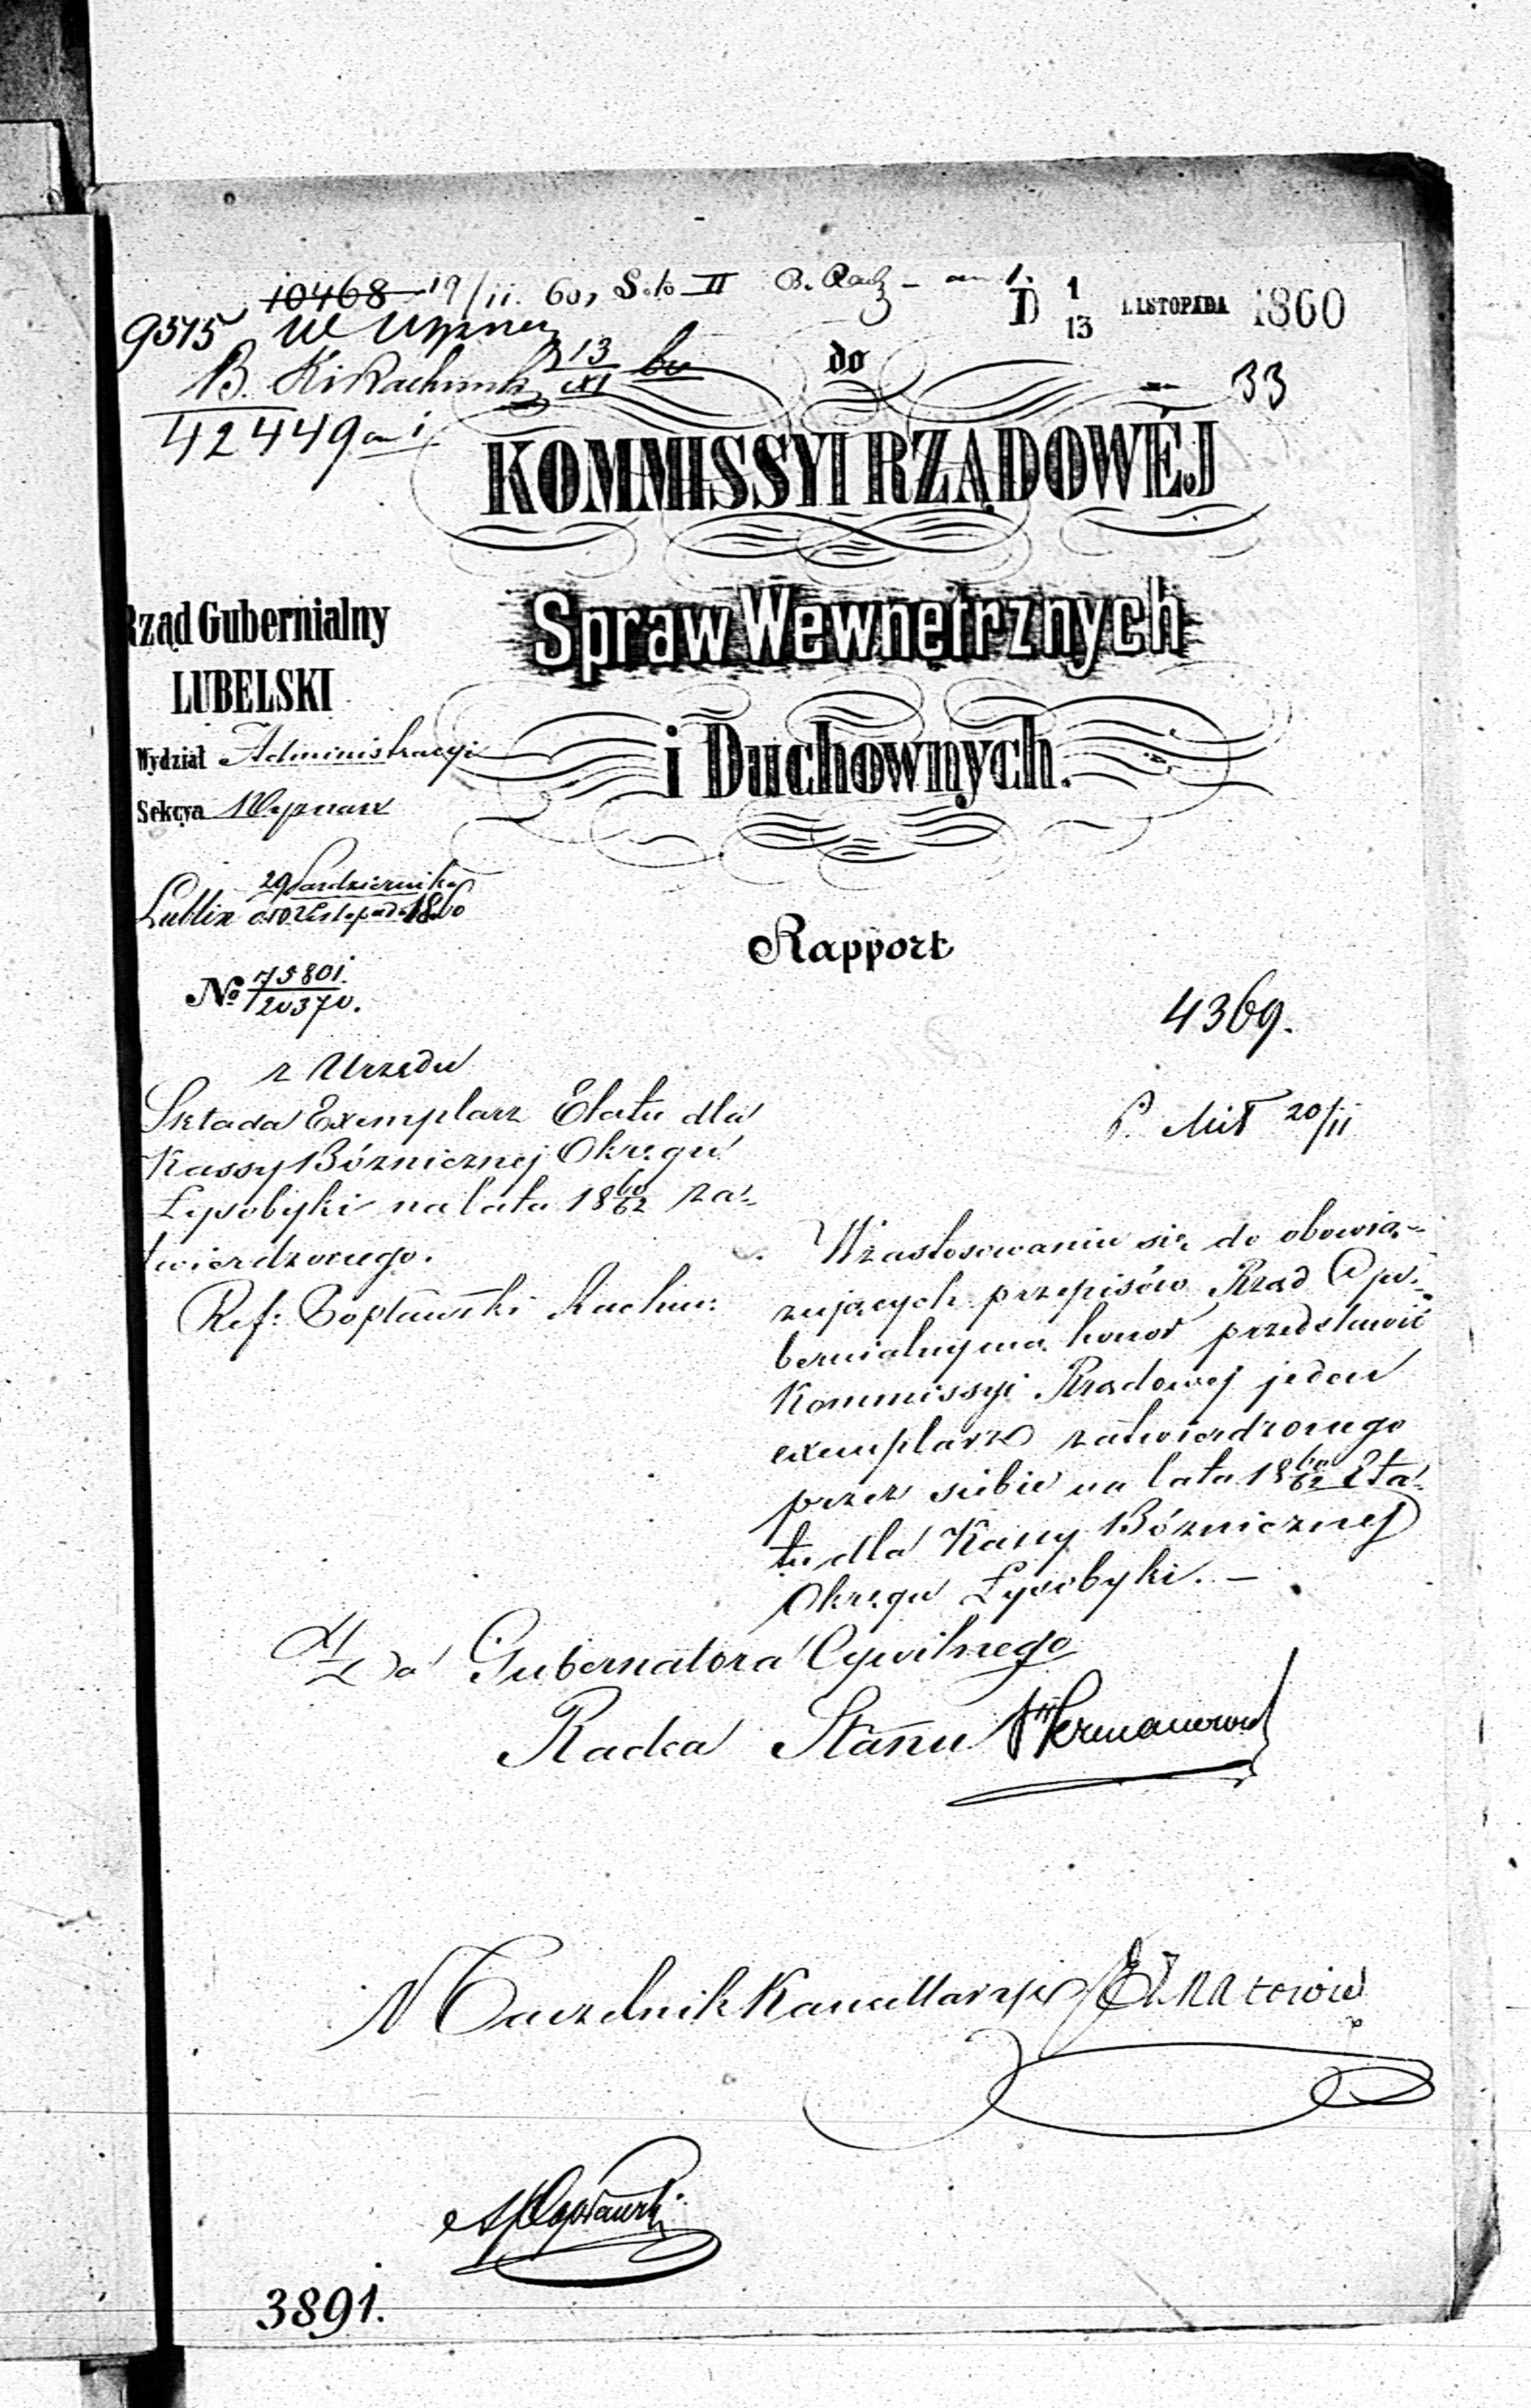 10468 19/11. 60, S.to II
D 1/13 LISTOPADA 1860
9515
13/XI 60
do
33
42449
KOMMISSYI RZĄDOWÉJ
Spraw Wewnętrznych
i Duchownych.
Rząd Gubernialny
LUBELSKI
Wydział Administracyi
Sekcya Wyznań
Lublin 29 Października/10 Listopada 1860
Rapport
No 75801./20370.
4369.
z Urzędu
Składa Exemplarz Etatu dla
Kassy Bóżnicznej Okręgu
Łysobyki na lata 18 60/62 za-
twierdzonego.
Ref: Popławski
20/11
W zastosowaniu się do obowią-
zujących przepisów Rząd Gu-
bernialny ma honor przedstawić
Kommissyi Rządowej jeden
exemplarz zatwierdzonego
przez siebie na lata 18 60/62 Eta-
tu dla Kassy Bóżnicznej
Okręgu Łysobyki. —
Za Gubernatora Cywilnego
Radca Stanu
Naczelnik Kancellaryi
3891.